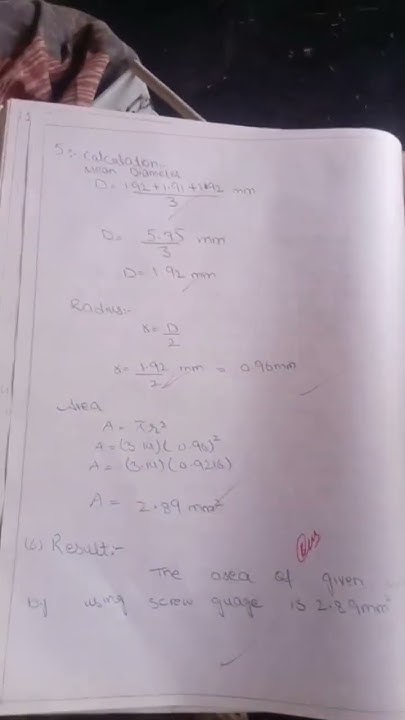 5:- Calculation:-
Mean Diameter
D = 1.92 + 1.91 + 1.92 mm
3
D = 5.75 mm
3
D = 1.92 mm
Radius:-
r = D
2
r = 1.92 mm = 0.96mm
2
Area
A = πr²
A = (3.14) (0.96)²
A = (3.14) (0.9216)
A = 2.89 mm²
(6) Result:-
The area of given
by using screw guage is 2.89mm²